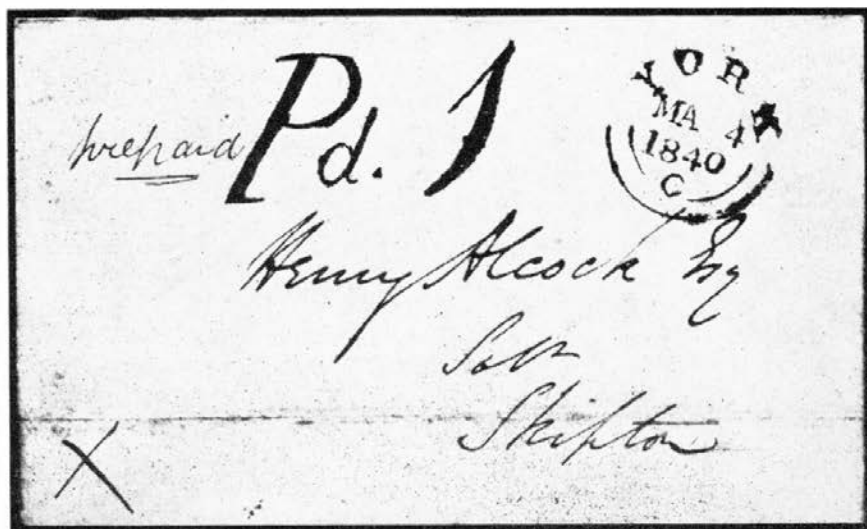 prepaid Pd. 1
YORK
MA 4
1840
C
Henry Alcock Esq
Solr
Skipton
X